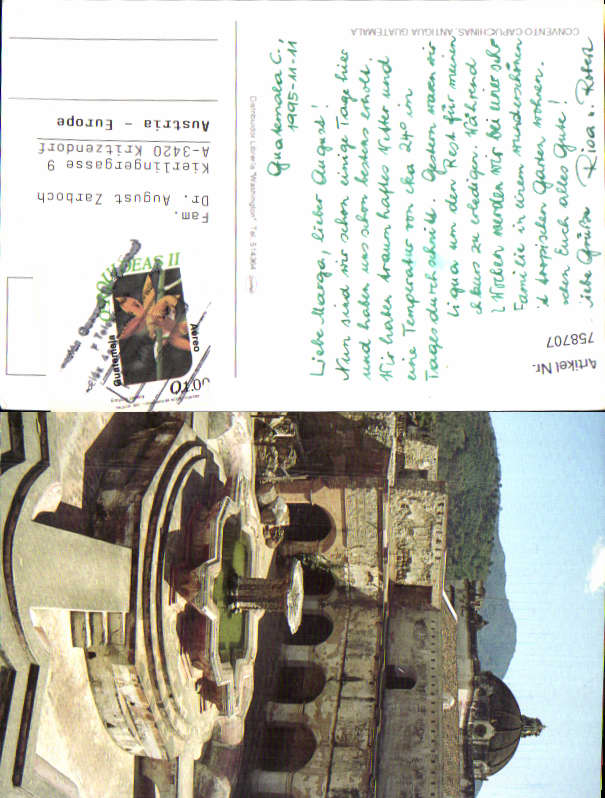 CONVENTO CAPUCHINAS, ANTIGUA GUATEMALA
Guatemala C.,
1995-11-11
Liebe Marga, lieber August!
Nun sind wir schon einige Tage hier
und haben uns schon bestens erholt.
Wir haben traumhaftes Wetter und
eine Temperatur von cka 24° im
Tagesdurchschnitt. Gestern waren wir
tigua um den Rest für meinen
kurs zu erledigen. Während
2 Wochen werden wir bei einer
Familie in einem wunderschönen
tropischen Garten wohnen.
Euch alles Gute!
Grüße
Artikel Nr.
758707
Fam.
Dr. August Zarboch
Kierlingergasse 9
A-3420 Kritzendorf
Austria - Europe
Guatemala
Aéreo
Q1.00
ORQUIDEAS II